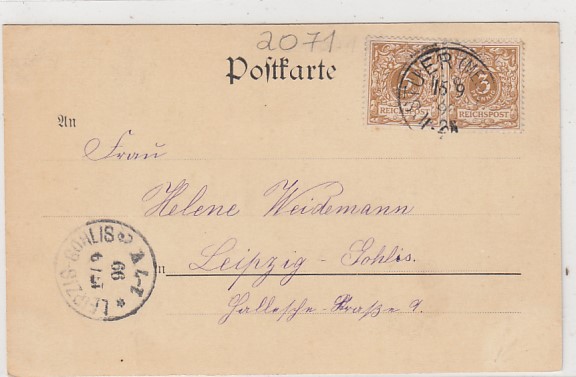 2071
Postkarte
3
REICHSPOST
REICHSPOST
15 9
An
Frau
Helene Weidemann
in Leipzig-Gohlis.
Hallesche-Straße 9.
LEIPZIG-GOHLIS
99